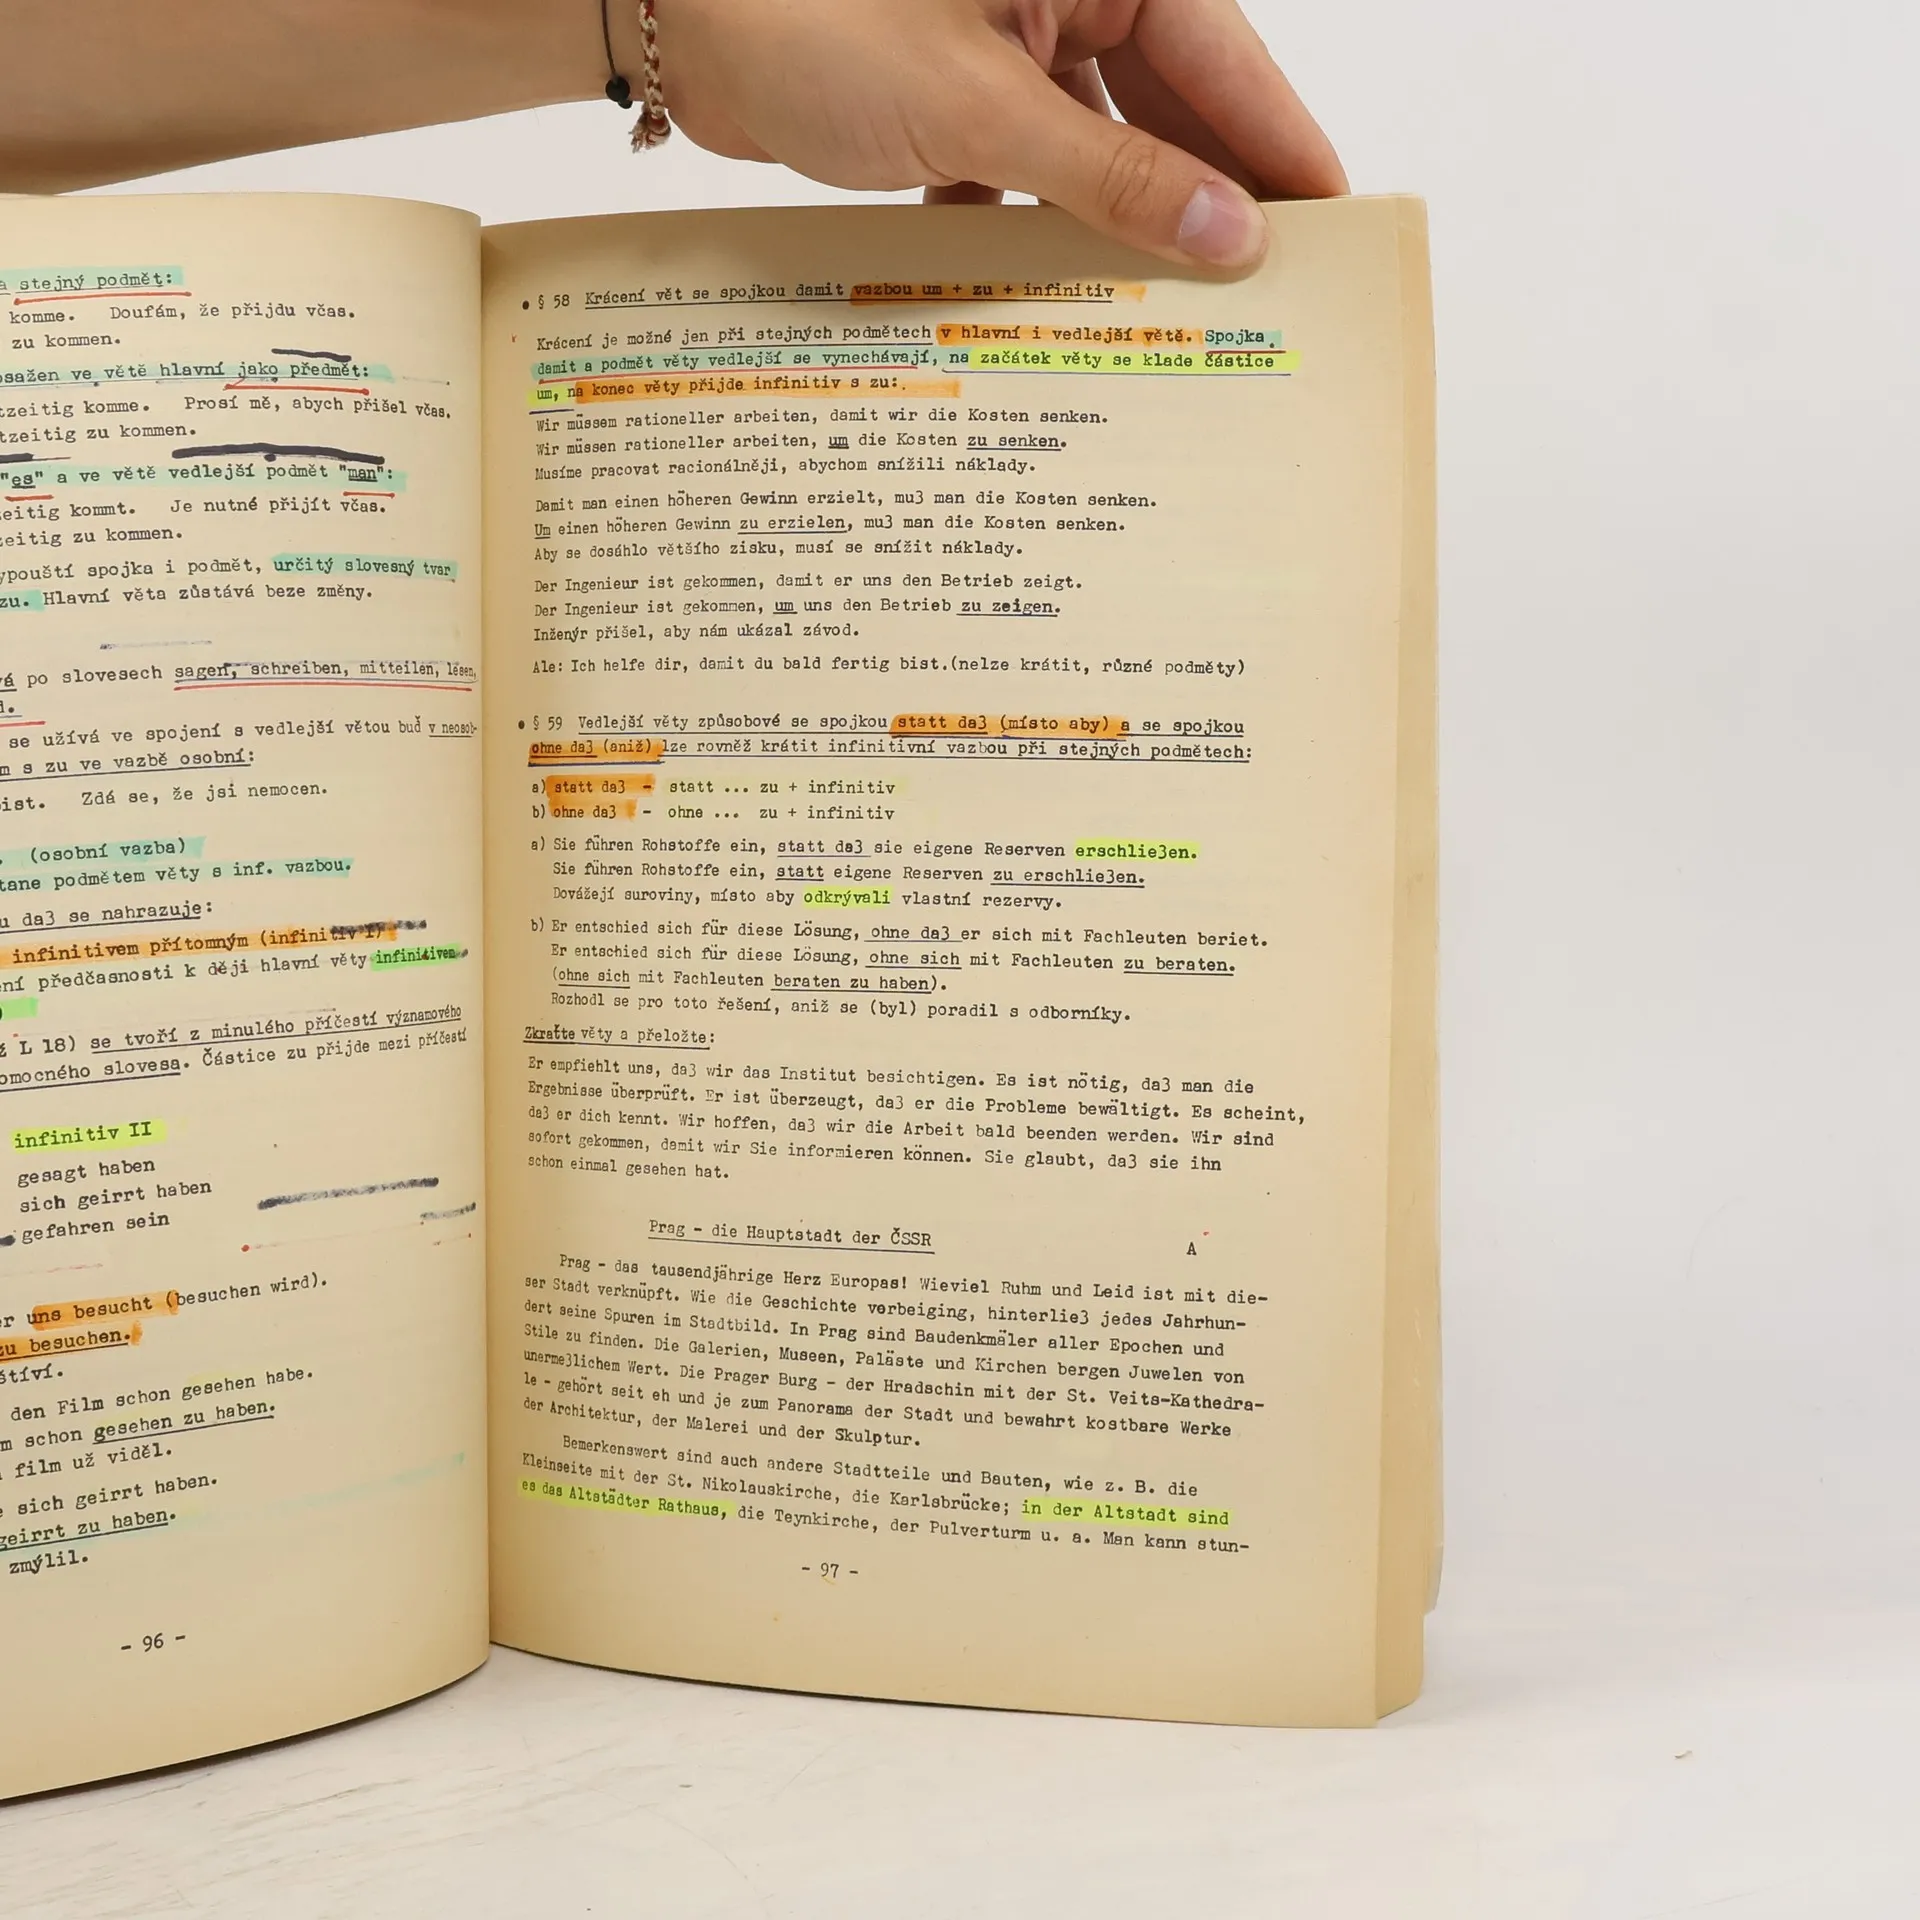 a stejný podmět:
komme. Doufám, že přijdu včas.
zu kommen.
osažen ve větě hlavní jako předmět:
tzeitig komme. Prosí mě, abych přišel včas.
tzeitig zu kommen.
"es" a ve větě vedlejší podmět "man":
zeitig kommt. Je nutné přijít včas.
zeitig zu kommen.
ypouští spojka i podmět, určitý slovesný tvar
zu. Hlavní věta zůstává beze změny.
vá po slovesech sagen, schreiben, mitteilen, lesen,
d.
se užívá ve spojení s vedlejší větou buď v neosob-
m s zu ve vazbě osobní:
bist. Zdá se, že jsi nemocen.
. (osobní vazba)
tane podmětem věty s inf. vazbou.
u da3 se nahrazuje:
infinitivem přítomným (infinitiv I)
ení předčasnosti k ději hlavní věty infinitivem
)
ž L 18) se tvoří z minulého příčestí významového
omocného slovesa. Částice zu přijde mezi příčestí
infinitiv II
gesagt haben
sich geirrt haben
gefahren sein
er uns besucht (besuchen wird).
zu besuchen.
štíví.
den Film schon gesehen habe.
m schon gesehen zu haben.
film už viděl.
e sich geirrt haben.
geirrt zu haben.
zmýlil.
- 96 -
• § 58 Krácení vět se spojkou damit vazbou um + zu + infinitiv
Krácení je možné jen při stejných podmětech v hlavní i vedlejší větě. Spojka
damit a podmět věty vedlejší se vynechávají, na začátek věty se klade částice
um, na konec věty přijde infinitiv s zu:
Wir müssem rationeller arbeiten, damit wir die Kosten senken.
Wir müssen rationeller arbeiten, um die Kosten zu senken.
Musíme pracovat racionálněji, abychom snížili náklady.
Damit man einen höheren Gewinn erzielt, mu3 man die Kosten senken.
Um einen höheren Gewinn zu erzielen, mu3 man die Kosten senken.
Aby se dosáhlo většího zisku, musí se snížit náklady.
Der Ingenieur ist gekommen, damit er uns den Betrieb zeigt.
Der Ingenieur ist gekommen, um uns den Betrieb zu zeigen.
Inženýr přišel, aby nám ukázal závod.
Ale: Ich helfe dir, damit du bald fertig bist.(nelze krátit, různé podměty)
• § 59 Vedlejší věty způsobové se spojkou statt da3 (místo aby) a se spojkou
ohne da3 (aniž) lze rovněž krátit infinitivní vazbou při stejných podmětech:
a) statt da3 - statt ... zu + infinitiv
b) ohne da3 - ohne ... zu + infinitiv
a) Sie führen Rohstoffe ein, statt da3 sie eigene Reserven erschlie3en.
Sie führen Rohstoffe ein, statt eigene Reserven zu erschlie3en.
Dovážejí suroviny, místo aby odkrývali vlastní rezervy.
b) Er entschied sich für diese Lösung, ohne da3 er sich mit Fachleuten beriet.
Er entschied sich für diese Lösung, ohne sich mit Fachleuten zu beraten.
(ohne sich mit Fachleuten beraten zu haben).
Rozhodl se pro toto řešení, aniž se (byl) poradil s odborníky.
Zkraťte věty a přeložte:
Er empfiehlt uns, da3 wir das Institut besichtigen. Es ist nötig, da3 man die
Ergebnisse überprüft. Er ist überzeugt, da3 er die Probleme bewältigt. Es scheint,
da3 er dich kennt. Wir hoffen, da3 wir die Arbeit bald beenden werden. Wir sind
sofort gekommen, damit wir Sie informieren können. Sie glaubt, da3 sie ihn
schon einmal gesehen hat.
Prag - die Hauptstadt der ČSSR
A
Prag - das tausendjährige Herz Europas! Wieviel Ruhm und Leid ist mit die-
ser Stadt verknüpft. Wie die Geschichte vorbeiging, hinterlie3 jedes Jahrhun-
dert seine Spuren im Stadtbild. In Prag sind Baudenkmäler aller Epochen und
Stile zu finden. Die Galerien, Museen, Paläste und Kirchen bergen Juwelen von
unerme3lichem Wert. Die Prager Burg - der Hradschin mit der St. Veits-Kathedra-
le - gehört seit eh und je zum Panorama der Stadt und bewahrt kostbare Werke
der Architektur, der Malerei und der Skulptur.
Bemerkenswert sind auch andere Stadtteile und Bauten, wie z. B. die
Kleinseite mit der St. Nikolauskirche, die Karlsbrücke; in der Altstadt sind
es das Altstädter Rathaus, die Teynkirche, der Pulverturm u. a. Man kann stun-
- 97 -